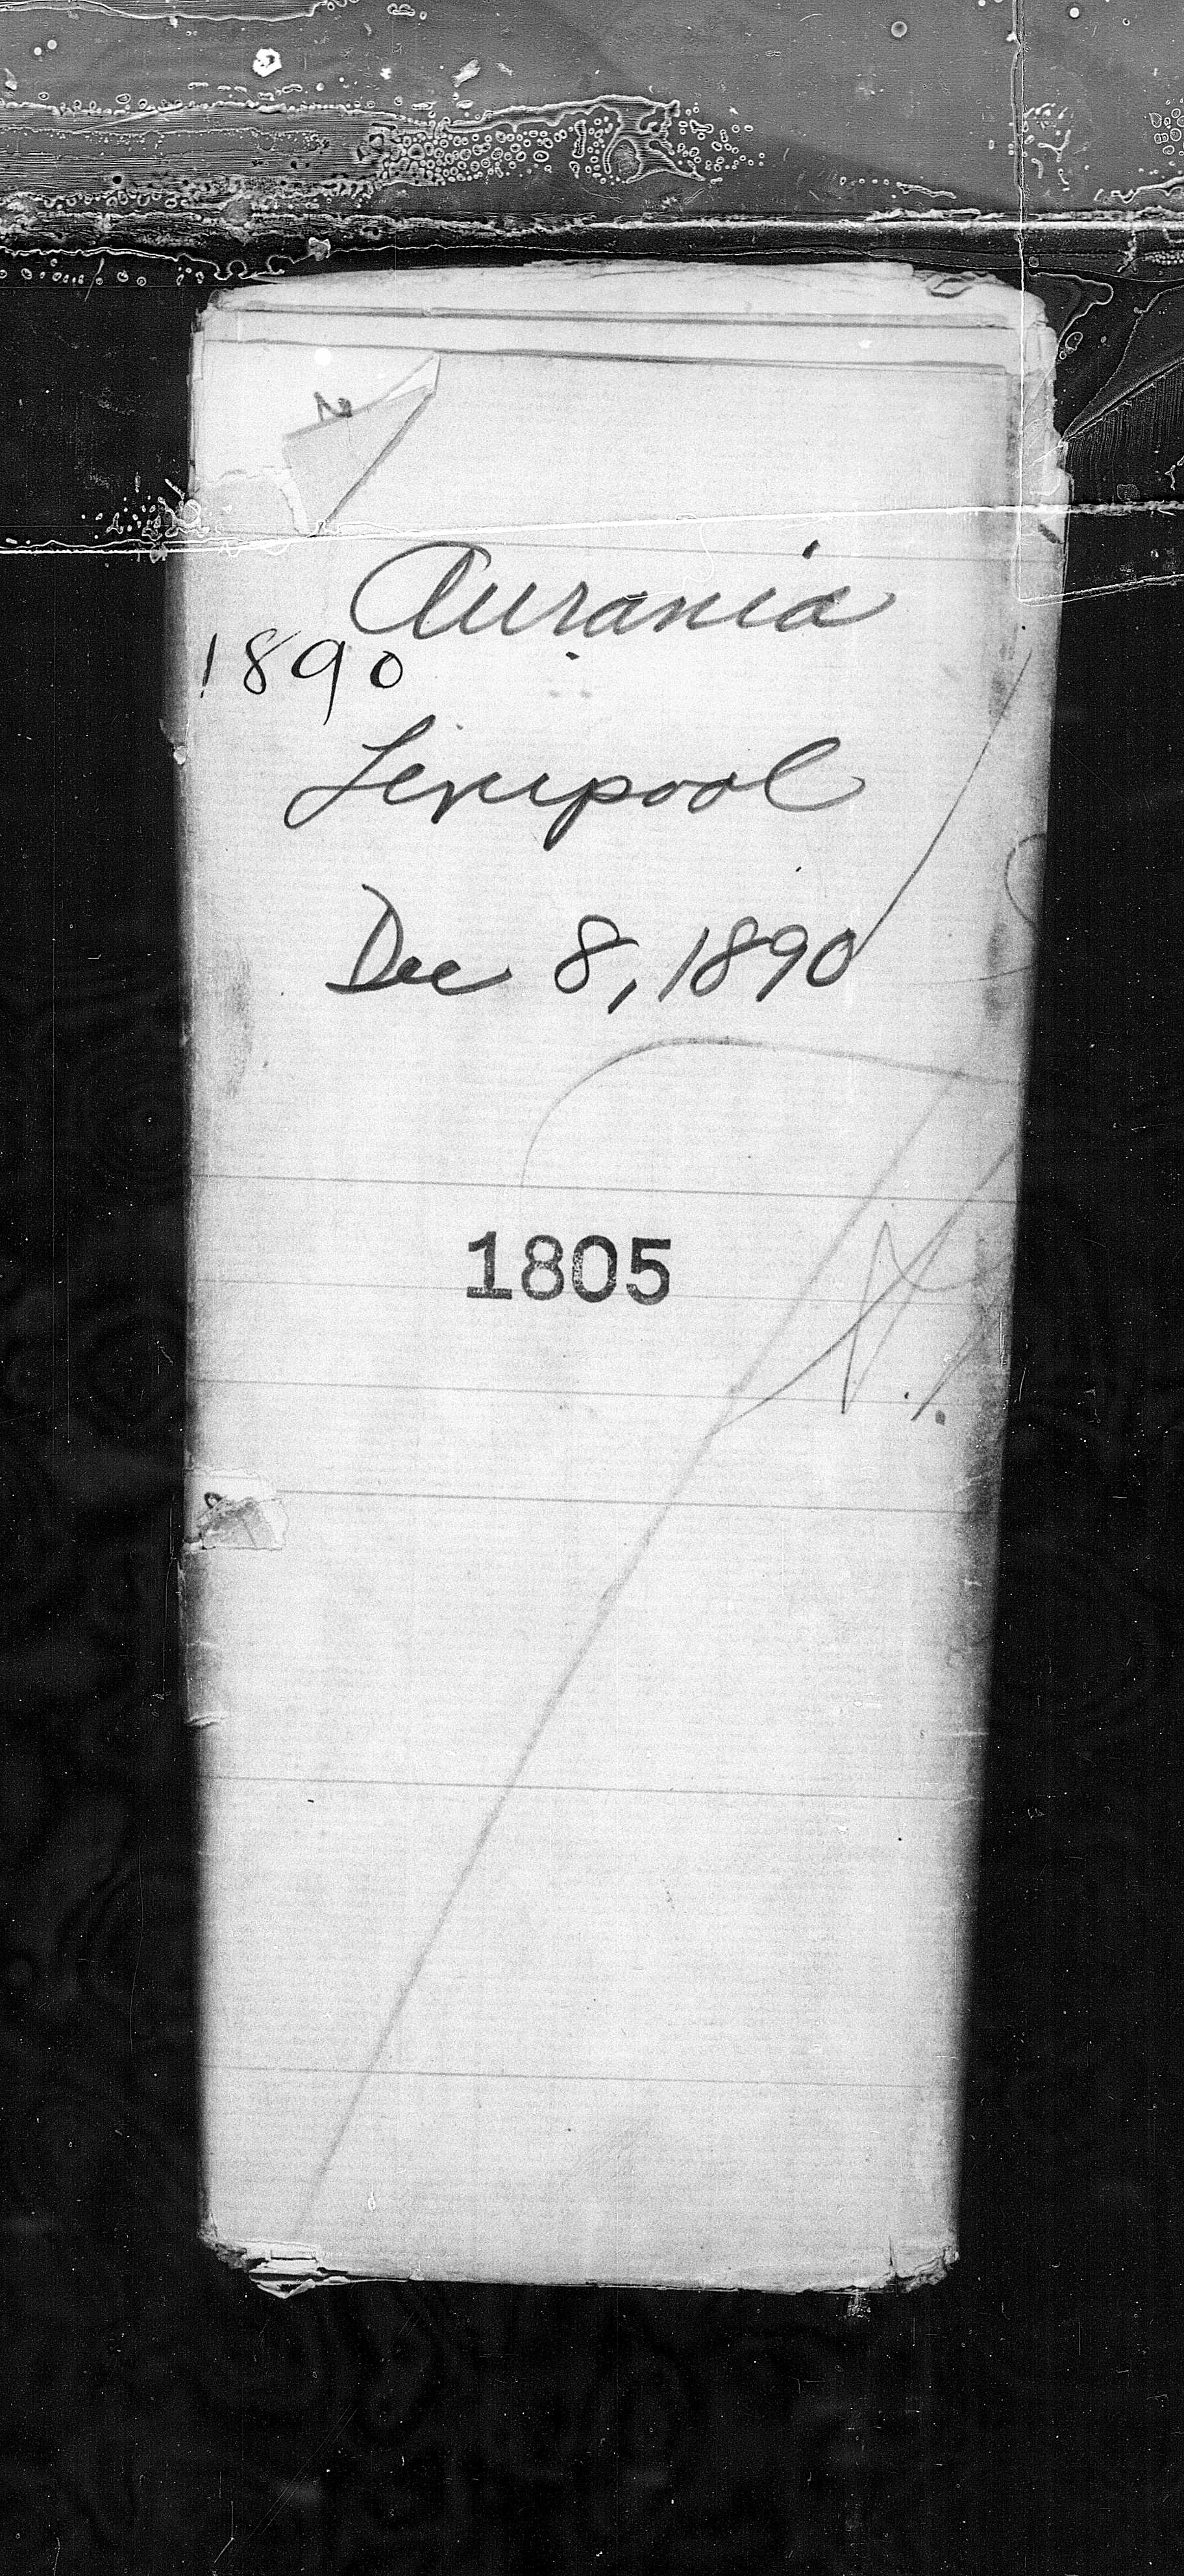 Aurania
1890
Liverpool
Dec 8, 1890
1805